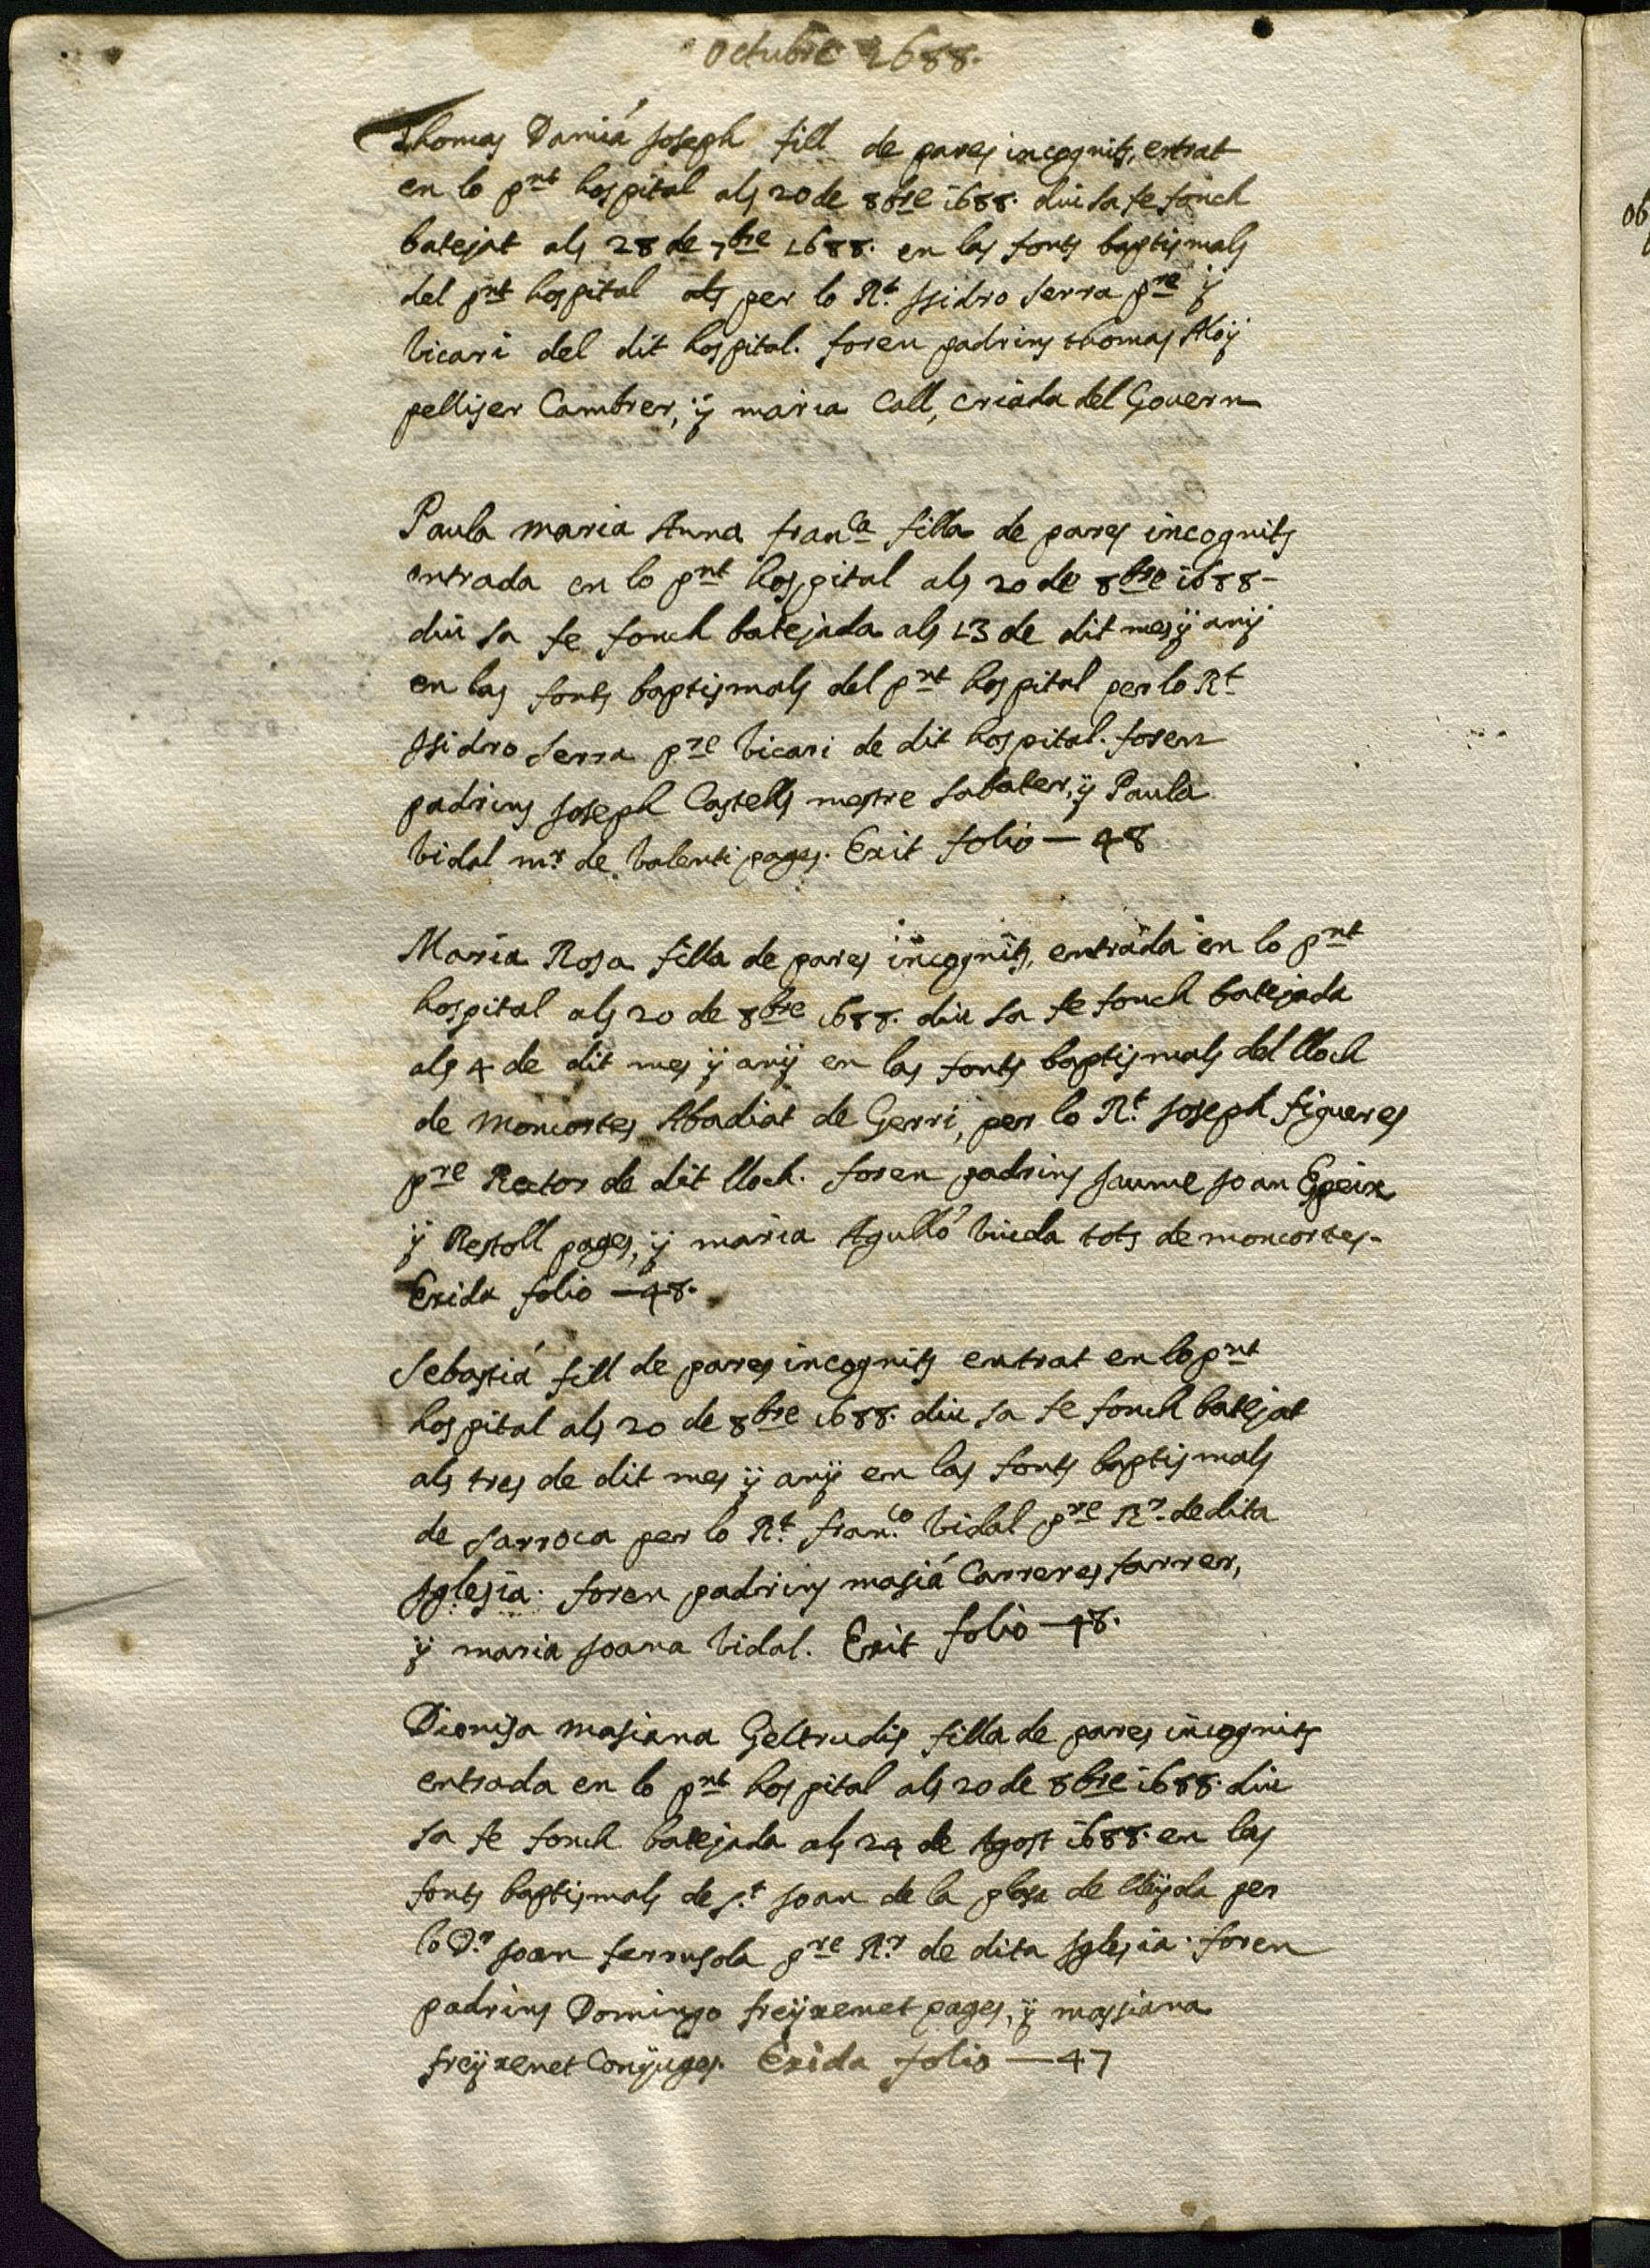 octubre 1688.
Thomas Damiá Joseph fill de pares incognits, entrat
en lo pnt hospital als 20 de 8bre 1688. diu sa fe fonch
batejat als 28 de 7bre 1688. en las fonts baptismals
del pnt hospital per lo Rt. Isidro Serra pre y
vicari del dit hospital. foren padrins thomas Aloy
pelliser Cambrer, y maria Coll, criada del Govern
Paula maria Anna franca filla de pares incognits
entrada en lo pnt hospital als 20 de 8bre 1688-
diu sa fe fonch batejada als 13 de dit mes y any
en las fonts baptismals del pnt hospital per lo Rt
Isidro Serra pre vicari de dit hospital. foren
padrins Joseph Castells mestre Sabater, y Paula
vidal mr. de valenti pages. Exit folio — 48
Maria Rosa filla de pares incognits, entrada en lo pnt
hospital als 20 de 8bre 1688. diu sa fe fonch batejada
als 4 de dit mes y any en las fonts baptismals del lloch
de moncortes Abadiat de Gerri, per lo Rt. Joseph figueres
pre Rector de dit lloch. foren padrins Jaume Joan
y Restoll pages, y maria Agulló viuda tots de moncortes.
Exida folio — 48.
Sebastiá fill de pares incognits entrat en lo pnt
hospital als 20 de 8bre 1688. diu sa fe fonch batejat
als tres de dit mes y any en las fonts baptismals
de Sarroca per lo Rt. franco. vidal pre Rr. de dita
Iglesia. foren padrins masiá Carreres farrer,
y maria Joana vidal. Exit folio — 48.
Dionisa masiana Geltrudis filla de pares incognits
entrada en lo pnt hospital als 20 de 8bre 1688. diu
sa fe fonch batejada als 24 de Agost 1688. en las
fonts baptismals de St. Joan de la plasa de lleyda per
lo Dr. Joan ferrusola pre Rr. de dita Iglesia. foren
padrins Domingo freyxenet pages, y massiana
freyxenet Conyuges. Exida folio — 47